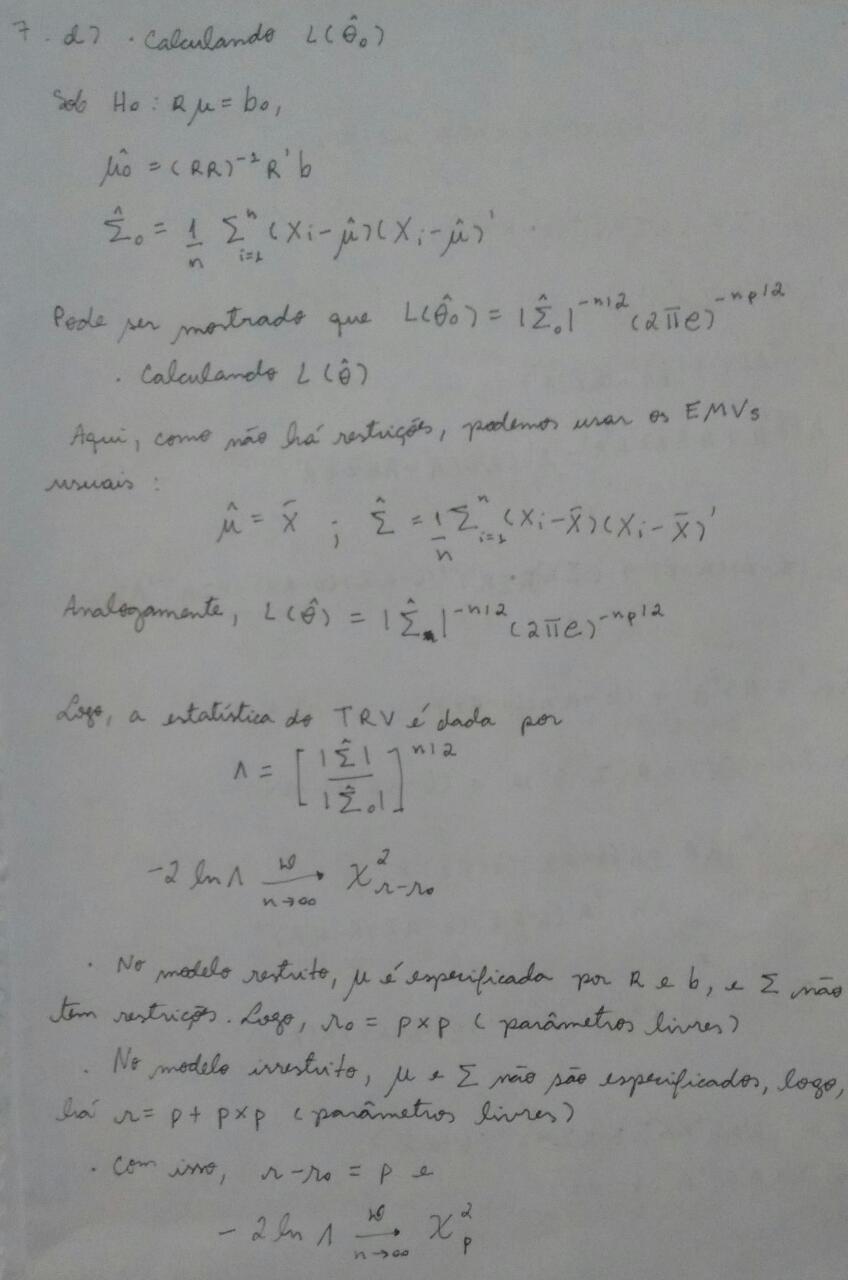 7. d) · Calculando L(θ̂₀)
Sob H₀: Rμ = b₀,
μ̂₀ = (RR)⁻¹ R' b
Σ̂₀ = 1/n Σⁿᵢ₌₁ (Xᵢ - μ̂)(Xᵢ - μ̂)'
Pode ser mostrado que L(θ̂₀) = |Σ̂₀|^(-n/2) (2πe)^(-np/2)
· Calculando L(θ̂)
Aqui, como não há restrições, podemos usar os EMVs
usuais:
μ̂ = X̄ ; Σ̂ = 1/n Σⁿᵢ₌₁ (Xᵢ - X̄)(Xᵢ - X̄)'
Analogamente, L(θ̂) = |Σ̂|^(-n/2) (2πe)^(-np/2)
Logo, a estatística do TRV é dada por
Λ = [|Σ̂| / |Σ̂₀|]^(n/2)
-2 ln Λ →(D, n→∞) χ²_(r-r₀)
· No modelo restrito, μ é especificada por R e b, e Σ não
tem restrições. Logo, r₀ = p×p (parâmetros livres)
· No modelo irrestrito, μ e Σ não são especificados, logo,
há r = p + p×p (parâmetros livres)
· Com isso, r-r₀ = p e
-2 ln Λ →(D, n→∞) χ²_p